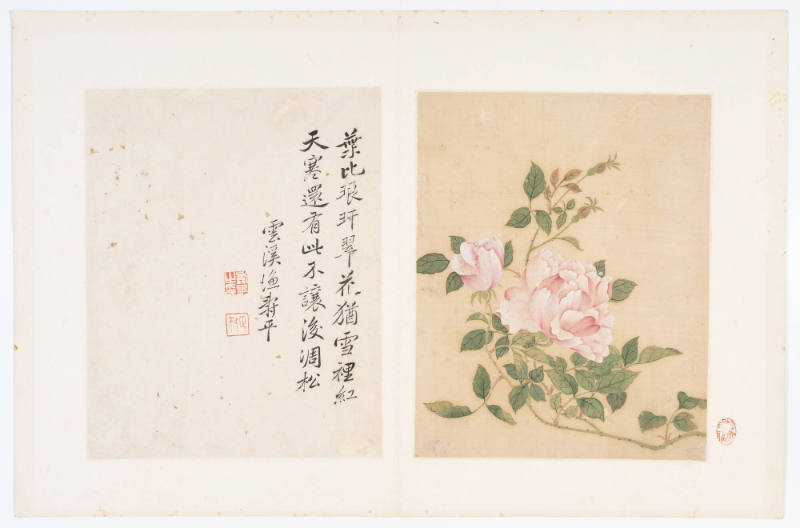 葉比琅玕翠花猶雪裡紅
天寒還有此不讓後凋松
雲溪漁壽平